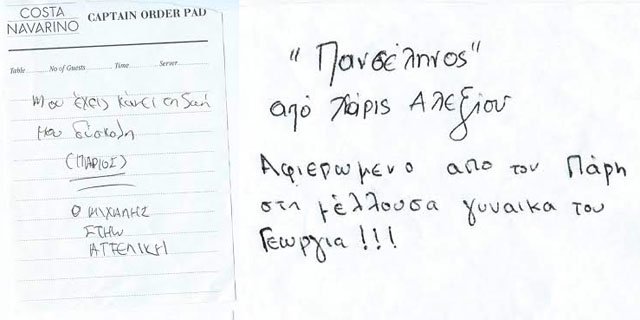 COSTA
NAVARINO
CAPTAIN ORDER PAD
Table No of Guests Time Server
Μου έχεις κάνει τη ζωή
μου δύσκολη
(ΠΑΡΙΟΣ)
Ο ΜΙΧΑΛΗΣ
ΣΤΗΝ
ΑΓΓΕΛΙΚΗ
"Πανσέληνος"
από Χάρις Αλεξίου
Αφιερωμενο απο τον Πάρη
στη μέλλουσα γυναικα του
Γεωργια!!!